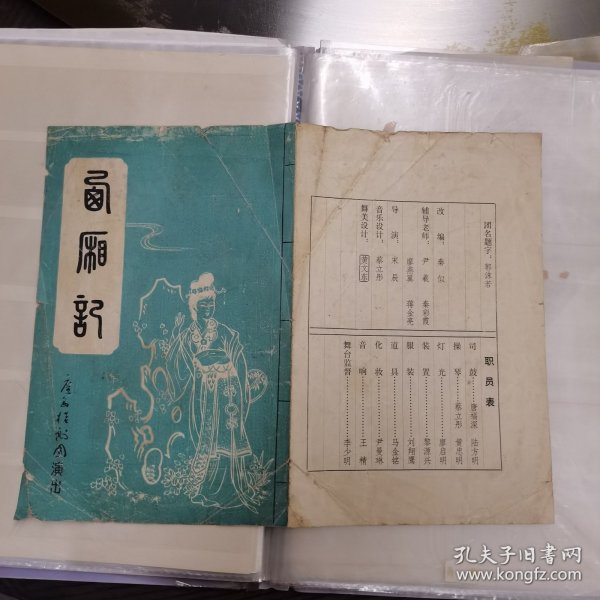 西厢记
广西桂剧团演出
团名题字：郭沫若
改编：秦似
辅导老师：尹羲 秦彩霞
廖燕翼 蒋金亮
导演：宋辰
音乐设计：蔡立彤
舞美设计：黄文奎
职员表
司鼓………唐福深 陆方明
操琴………蔡立彤 曾忠明
灯光………廖启明
装置………黎源兴
服装………刘翔鹰
道具………马金铭
化妆………尹曼琳
音响………王精
舞台监督………李少明
孔夫子旧书网
www.kongfz.com